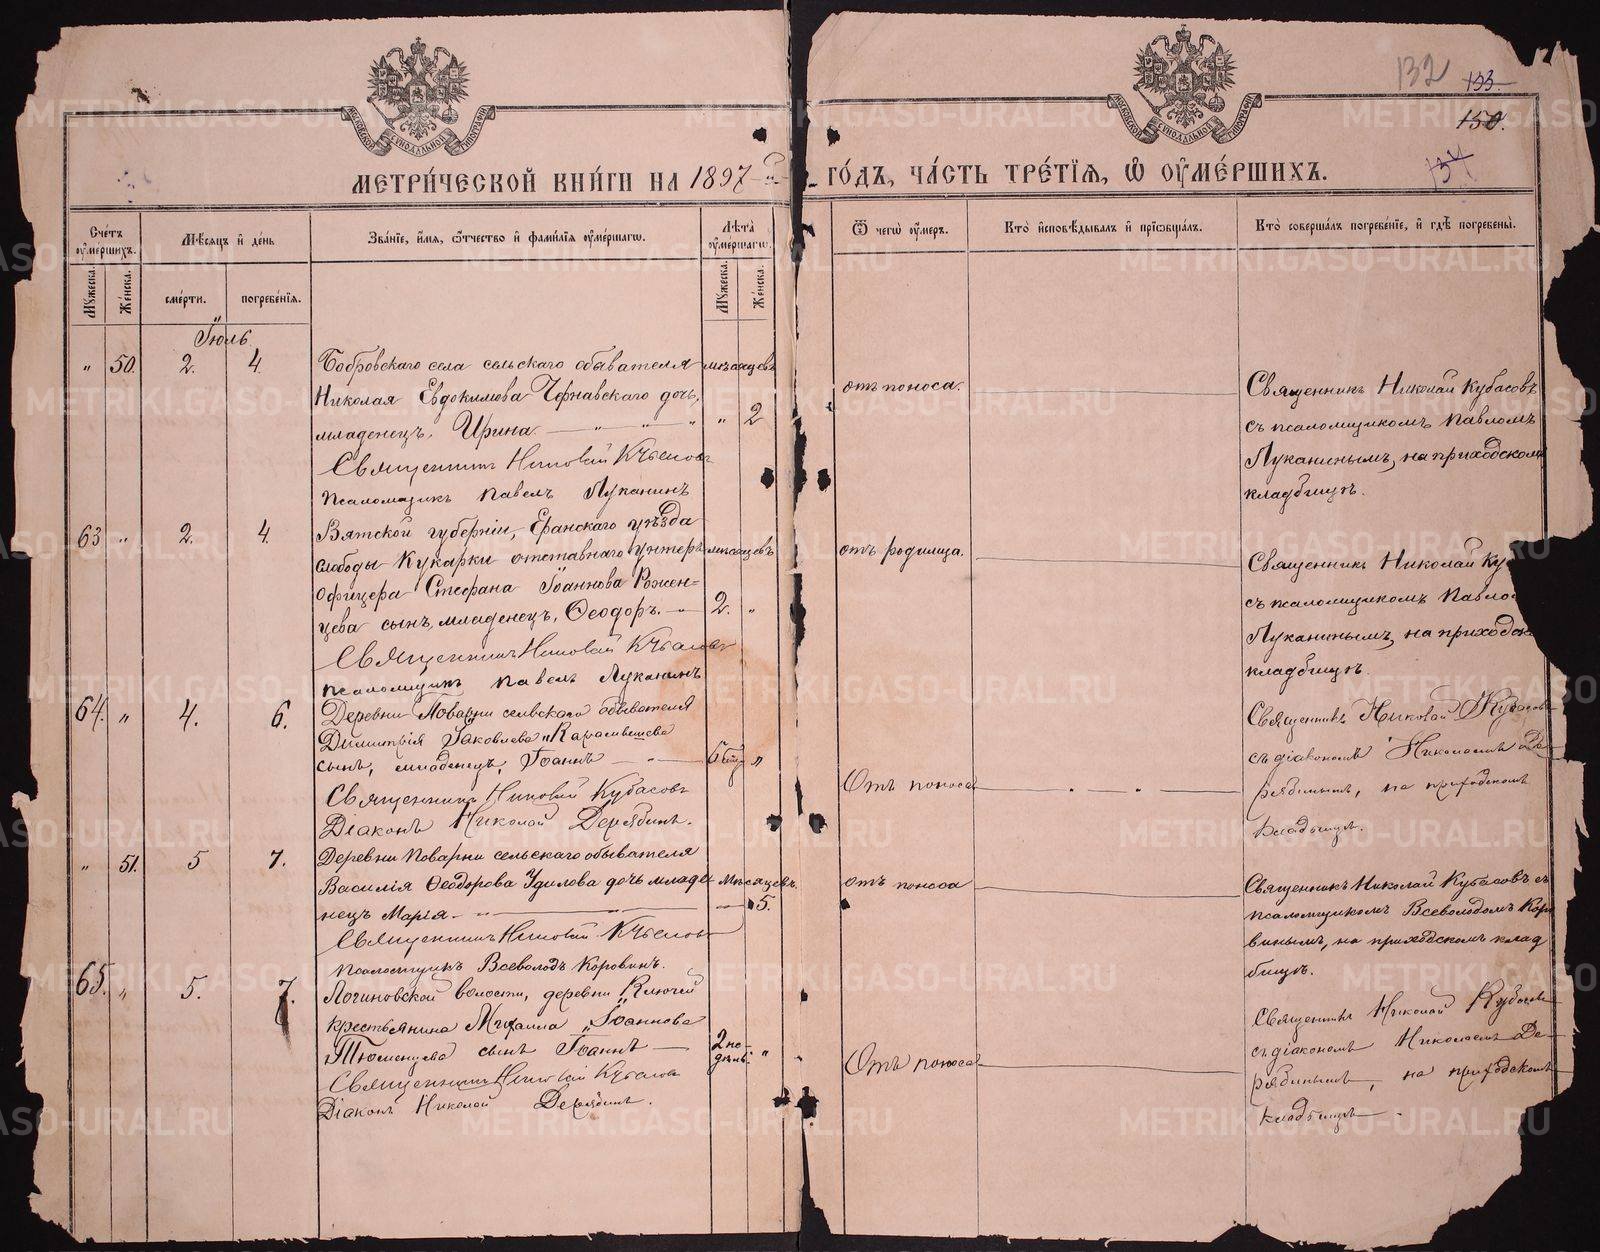 132 133
150.
134
МОСКОВСКОЙ СѴНОДАЛЬНОЙ ТИПОГРАФІИ
МОСКОВСКОЙ СѴНОДАЛЬНОЙ ТИПОГРАФІИ
МЕТРИ́ЧЕСКОЙ КНИ́ГИ НА 1897-й ГО́ДЪ, ЧА́СТЬ ТРЕ́ТІЯ, Ѡ ОУМЕ́РШИХЪ.
Сче́тъ оуме́ршихъ. Мѣ́сяцъ и де́нь Зва́ніе, и́мя, ѻ́тчество и фами́лія оуме́ршагѡ. Лѣ́та оуме́ршагѡ. Ѿ чегѡ̀ оу́меръ. Кто̀ исповѣ́дывалъ и пріѡбща́лъ. Кто̀ соверша́лъ погребе́ніе, и гдѣ̀ погребены̀.
Му́жеска. Же́нска. сме́рти. погребе́нія. Му́жеска. Же́нска.
Іюль
" 50. 2. 4. Бобровскаго села сельскаго обывателя мѣсяцевъ
Николая Евдокимова Чернавскаго дочь,
младенецъ, Ирина. " " " " 2
Священникъ Николай Кубасовъ
Псаломщикъ Павелъ Луканинъ
отъ поноса.
Священникъ Николай Кубасовъ
съ псаломщикомъ Павломъ
Луканинымъ, на приходскомъ
кладбищѣ.
63 " 2. 4. Вятской губерніи, Яранскаго уѣзда
слободы Кукарки отставнаго унтеръ мѣсяцевъ
офицера Стефана Іоаннова Рожен-
цева сынъ, младенецъ, Ѳеодоръ. " 2. "
Священникъ Николай Кубасовъ
псаломщикъ Павелъ Луканинъ
отъ родимца.
Священникъ Николай Ку
съ псаломщикомъ Павло
Луканинымъ, на приходско
кладбищѣ.
64. " 4. 6. Деревни Поварни сельскаго обывателя
Димитрія Іаковлева Карамышева
сынъ, младенецъ, Іоаннъ "
Священникъ Николай Кубасовъ
Діаконъ Николай Дерябинъ.
Отъ поноса
Священникъ Николай Кубасовъ
съ діакономъ Николаемъ Де-
рябинымъ, на приходскомъ
кладбищѣ.
" 51. 5 7. Деревни Поварни сельскаго обывателя
Василія Ѳеодорова Удилова дочь младе Мѣсяцевъ.
нецъ Марія. " " 5.
Священникъ Николай Кубасовъ
Псаломщикъ Всеволодъ Коровинъ.
отъ поноса
Священникъ Николай Кубасовъ съ
псаломщикомъ Всеволодомъ Коро
винымъ, на приходскомъ клад
бищѣ.
65. " 5. 7. Логиновской волости, деревни Ключей
крестьянина Михаила Іоаннова
Тюменцева сынъ Іоаннъ 2 не-
дѣль. "
Священникъ Николай Кубасовъ
Діаконъ Николай Дерябинъ.
Отъ поноса
Священникъ Николай Кубасовъ
съ діакономъ Николаемъ Де-
рябинымъ, на приходскомъ
кладбищѣ.
METRIKI.GASO-URAL.RU